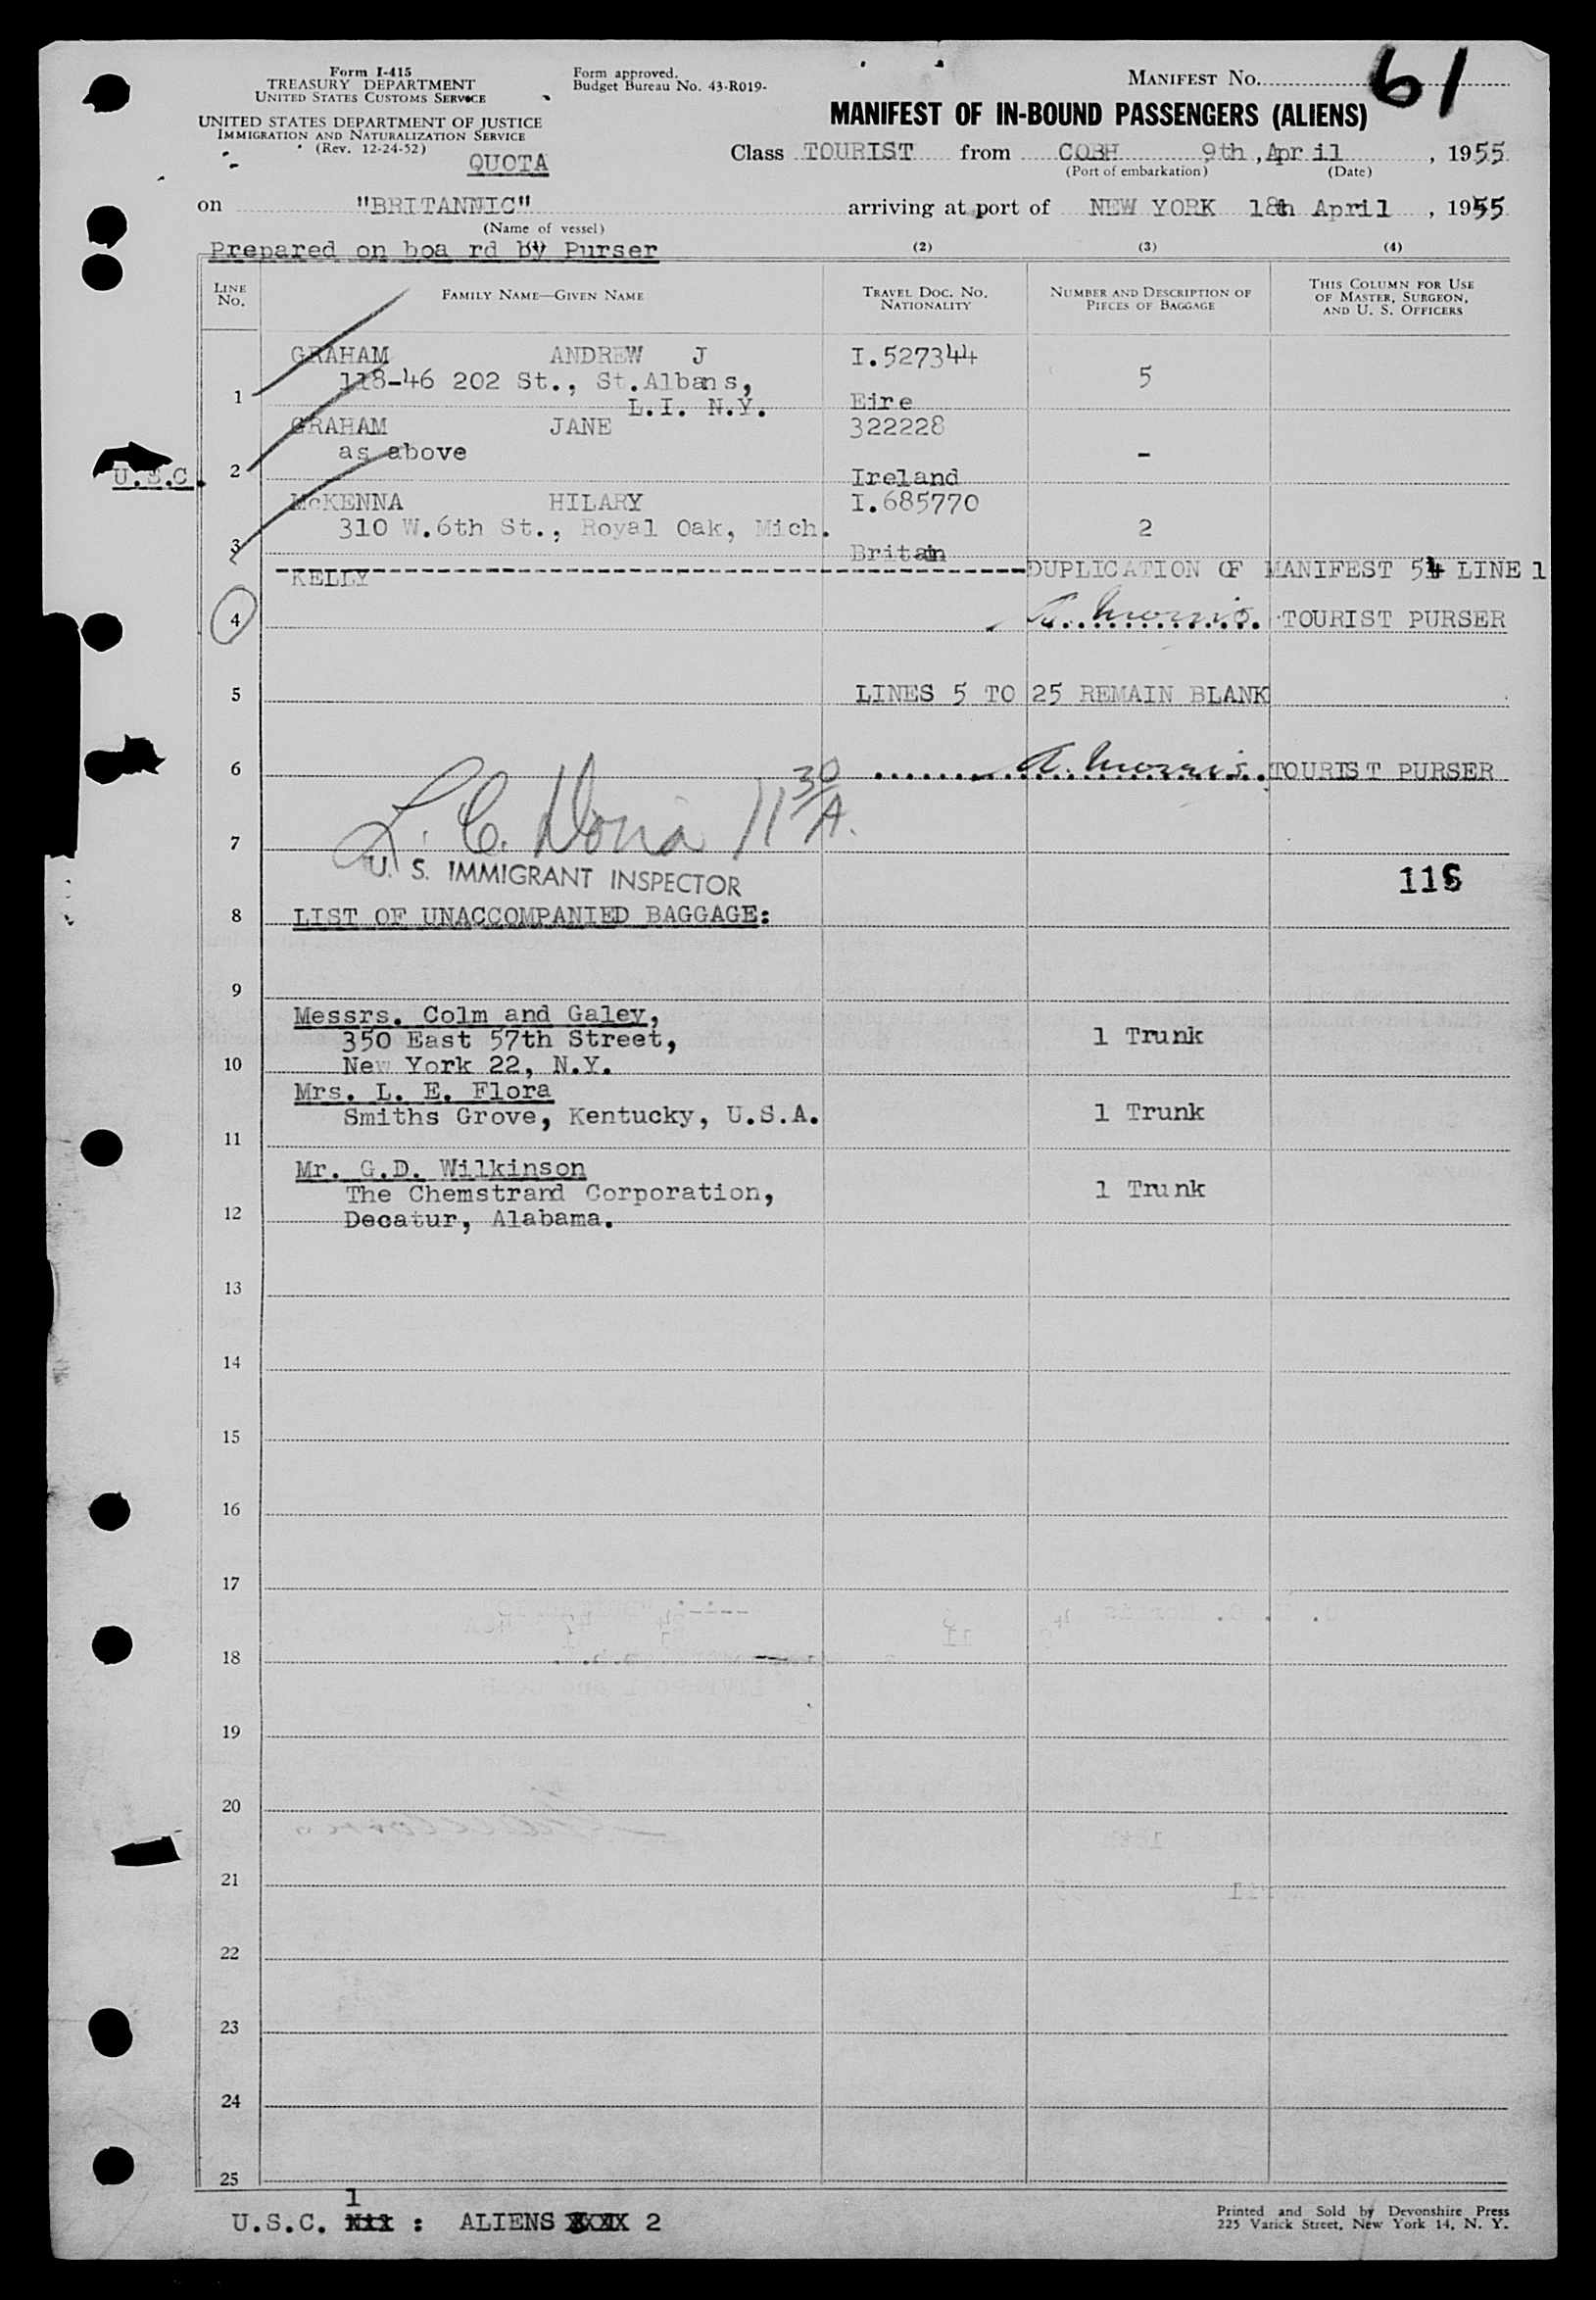 Form I-415
TREASURY DEPARTMENT
UNITED STATES CUSTOMS SERVICE
UNITED STATES DEPARTMENT OF JUSTICE
IMMIGRATION AND NATURALIZATION SERVICE
(Rev. 12-24-52)
Form approved.
Budget Bureau No. 43-R019-
MANIFEST NO. 61
MANIFEST OF IN-BOUND PASSENGERS (ALIENS)
QUOTA
Class TOURIST from COBH 9th, April, 1955
(Port of embarkation) (Date)
on "BRITANNIC" arriving at port of NEW YORK 18th April, 1955
(Name of vessel)
Prepared on boa rd by Purser
(2) (3) (4)
LINE NO.
FAMILY NAME—GIVEN NAME
TRAVEL DOC. NO. NATIONALITY
NUMBER AND DESCRIPTION OF PIECES OF BAGGAGE
THIS COLUMN FOR USE OF MASTER, SURGEON, AND U. S. OFFICERS
GRAHAM ANDREW J I.527344
118-46 202 St., St.Albans, 5
1 L.I. N.Y. Eire
GRAHAM JANE 322228
as above -
U.S.C. 2 Ireland
McKENNA HILARY I.685770
310 W.6th St., Royal Oak, Mich. 2
3 Britain
KELLY DUPLICATION OF MANIFEST 54 LINE 1
4 A. Morris TOURIST PURSER
5 LINES 5 TO 25 REMAIN BLANK
6 A. Morris TOURIST PURSER
L. C. 11 30 A.
7
U. S. IMMIGRANT INSPECTOR
8 LIST OF UNACCOMPANIED BAGGAGE:
9
Messrs. Colm and Galey,
350 East 57th Street, 1 Trunk
10 New York 22, N.Y.
Mrs. L. E. Flora
Smiths Grove, Kentucky, U.S.A. 1 Trunk
11
Mr. G.D. Wilkinson
The Chemstrand Corporation, 1 Trunk
12 Decatur, Alabama.
13
14
15
16
17
18
19
20
21
22
23
24
25
1
U.S.C. Nil : ALIENS 2
Printed and Sold by Devonshire Press
225 Varick Street, New York 14, N. Y.